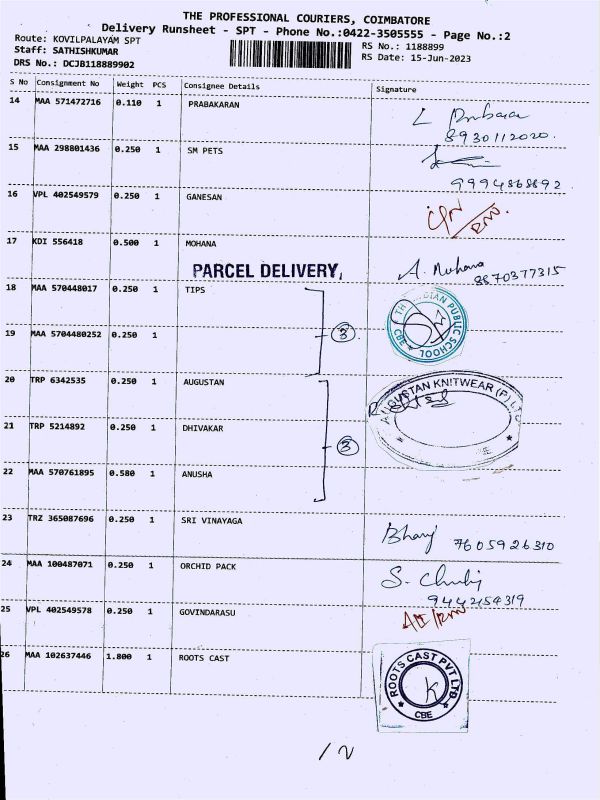 THE PROFESSIONAL COURIERS, COIMBATORE
Delivery Runsheet - SPT - Phone No.:0422-3505555 - Page No.:2
Route: KOVILPALAYAM SPT
RS No.: 1188899
Staff: SATHISHKUMAR
RS Date: 15-Jun-2023
DRS No.: DCJB118889902
S No Consignment No Weight PCS Consignee Details Signature
14 MAA 571472716 0.110 1 PRABAKARAN
8930112020.
15 MAA 298801436 0.250 1 SM PETS
9994868892
16 VPL 402549579 0.250 1 GANESAN
17 KDI 556418 0.500 1 MOHANA A. Mohana
8870377315
PARCEL DELIVERY,
18 MAA 570448017 0.250 1 TIPS
PUBLIC SCHOOL
CBE
3
19 MAA 5704480252 0.250 1
20 TRP 6342535 0.250 1 AUGUSTAN
AUGUSTAN KNITWEAR (P) LTD
21 TRP 5214892 0.250 1 DHIVAKAR
3
22 MAA 570761895 0.580 1 ANUSHA
23 TRZ 365087696 0.250 1 SRI VINAYAGA
7605926310
24 MAA 100487071 0.250 1 ORCHID PACK
9442154319
25 VPL 402549578 0.250 1 GOVINDARASU
26 MAA 102637446 1.800 1 ROOTS CAST
ROOTS CAST PVT LTD
K
CBE